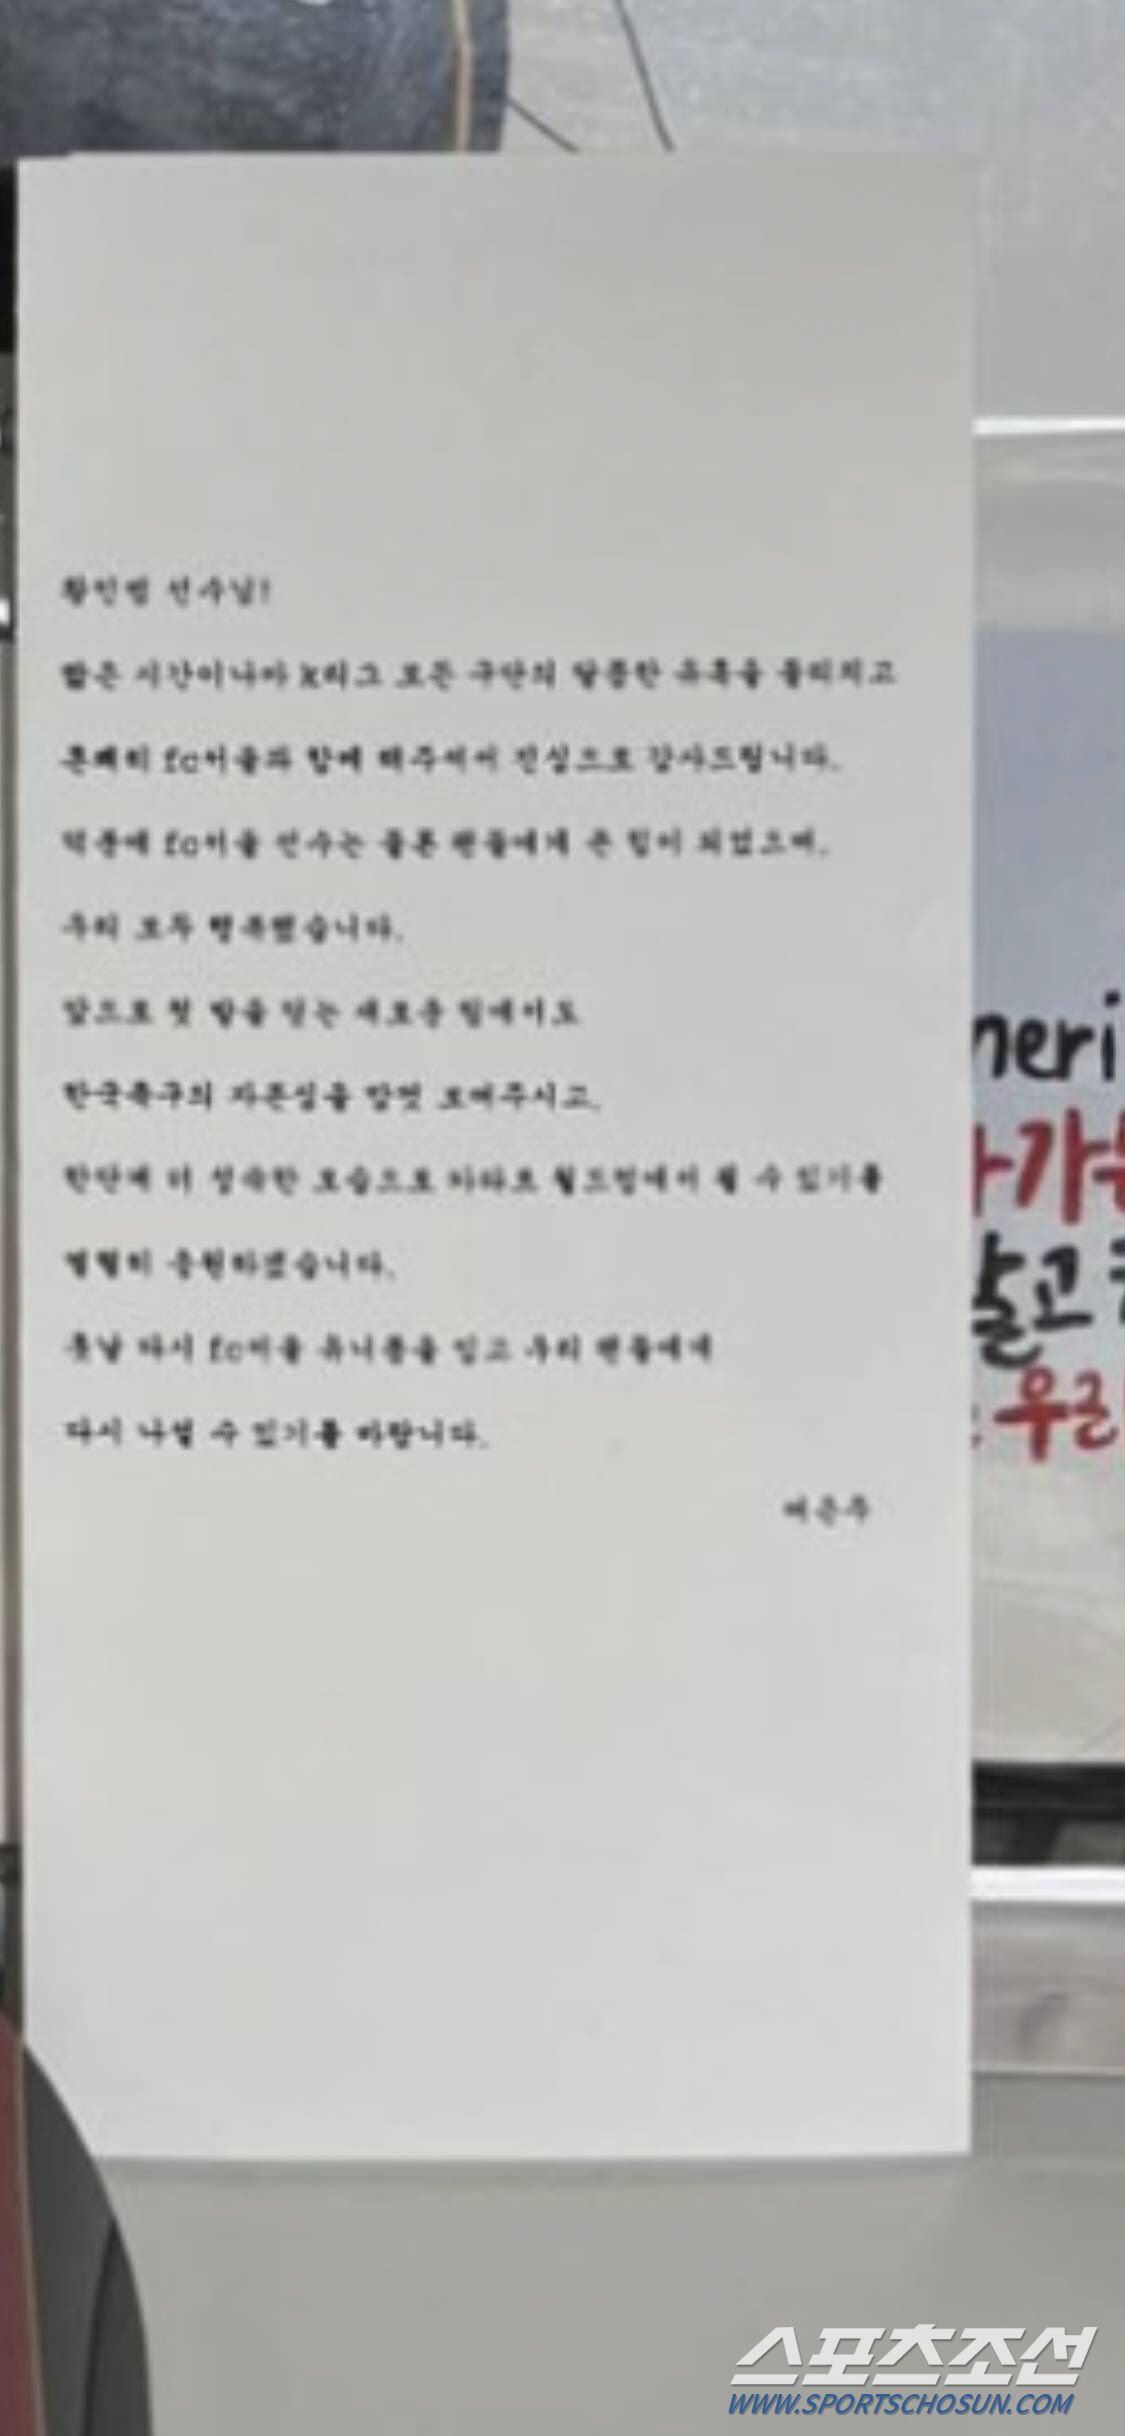 황인범 선수님!
짧은 시간이나마 k리그 모든 구단의 달콤한 유혹을 물리치고
흔쾌히 fc서울과 함께 해주셔서 진심으로 감사드립니다.
덕분에 fc서울 선수는 물론 팬들에게 큰 힘이 되었으며,
우리 모두 행복했습니다.
앞으로 첫 발을 딛는 새로운 팀에서도
한국축구의 자존심을 맘껏 보여주시고,
한단계 더 성숙한 모습으로 카타르 월드컵에서 뛸 수 있기를
열렬히 응원하겠습니다.
훗날 다시 fc서울 유니폼을 입고 우리 팬들에게
다시 나설 수 있기를 바랍니다.
neri
알고
우리
스포츠조선
WWW.SPORTSCHOSUN.COM